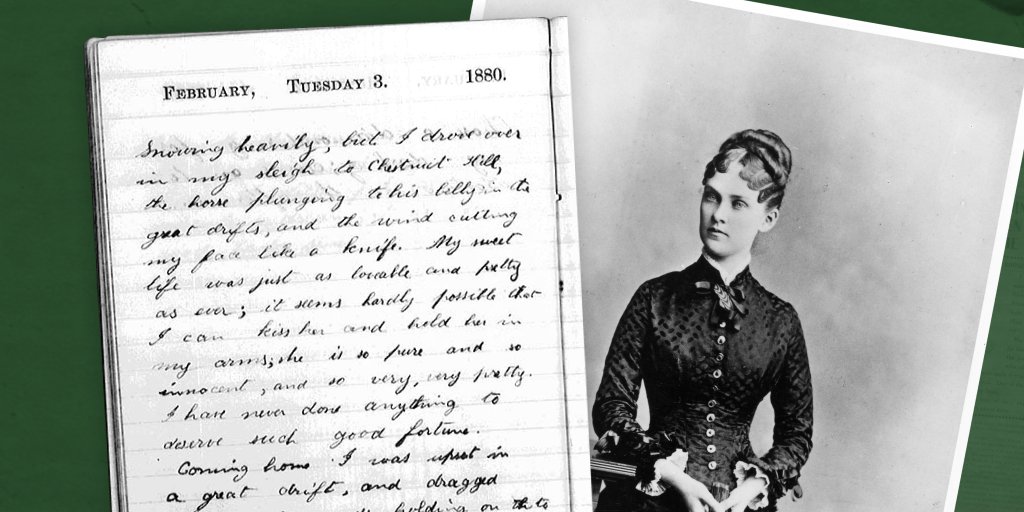 FEBRUARY, TUESDAY 3. 1880.
Snowing heavily; but I drove over
in my sleigh to Chestnut Hill,
the horse plunging to his belly in the
great drifts, and the wind cutting
my face like a knife. My sweet
life was just as lovable and pretty
as ever; it seems hardly possible that
I can kiss her and hold her in
my arms; she is so pure and so
innocent, and so very, very pretty.
I have never done anything to
deserve such good fortune.
Coming home I was upset in
a great drift, and dragged
holding on to